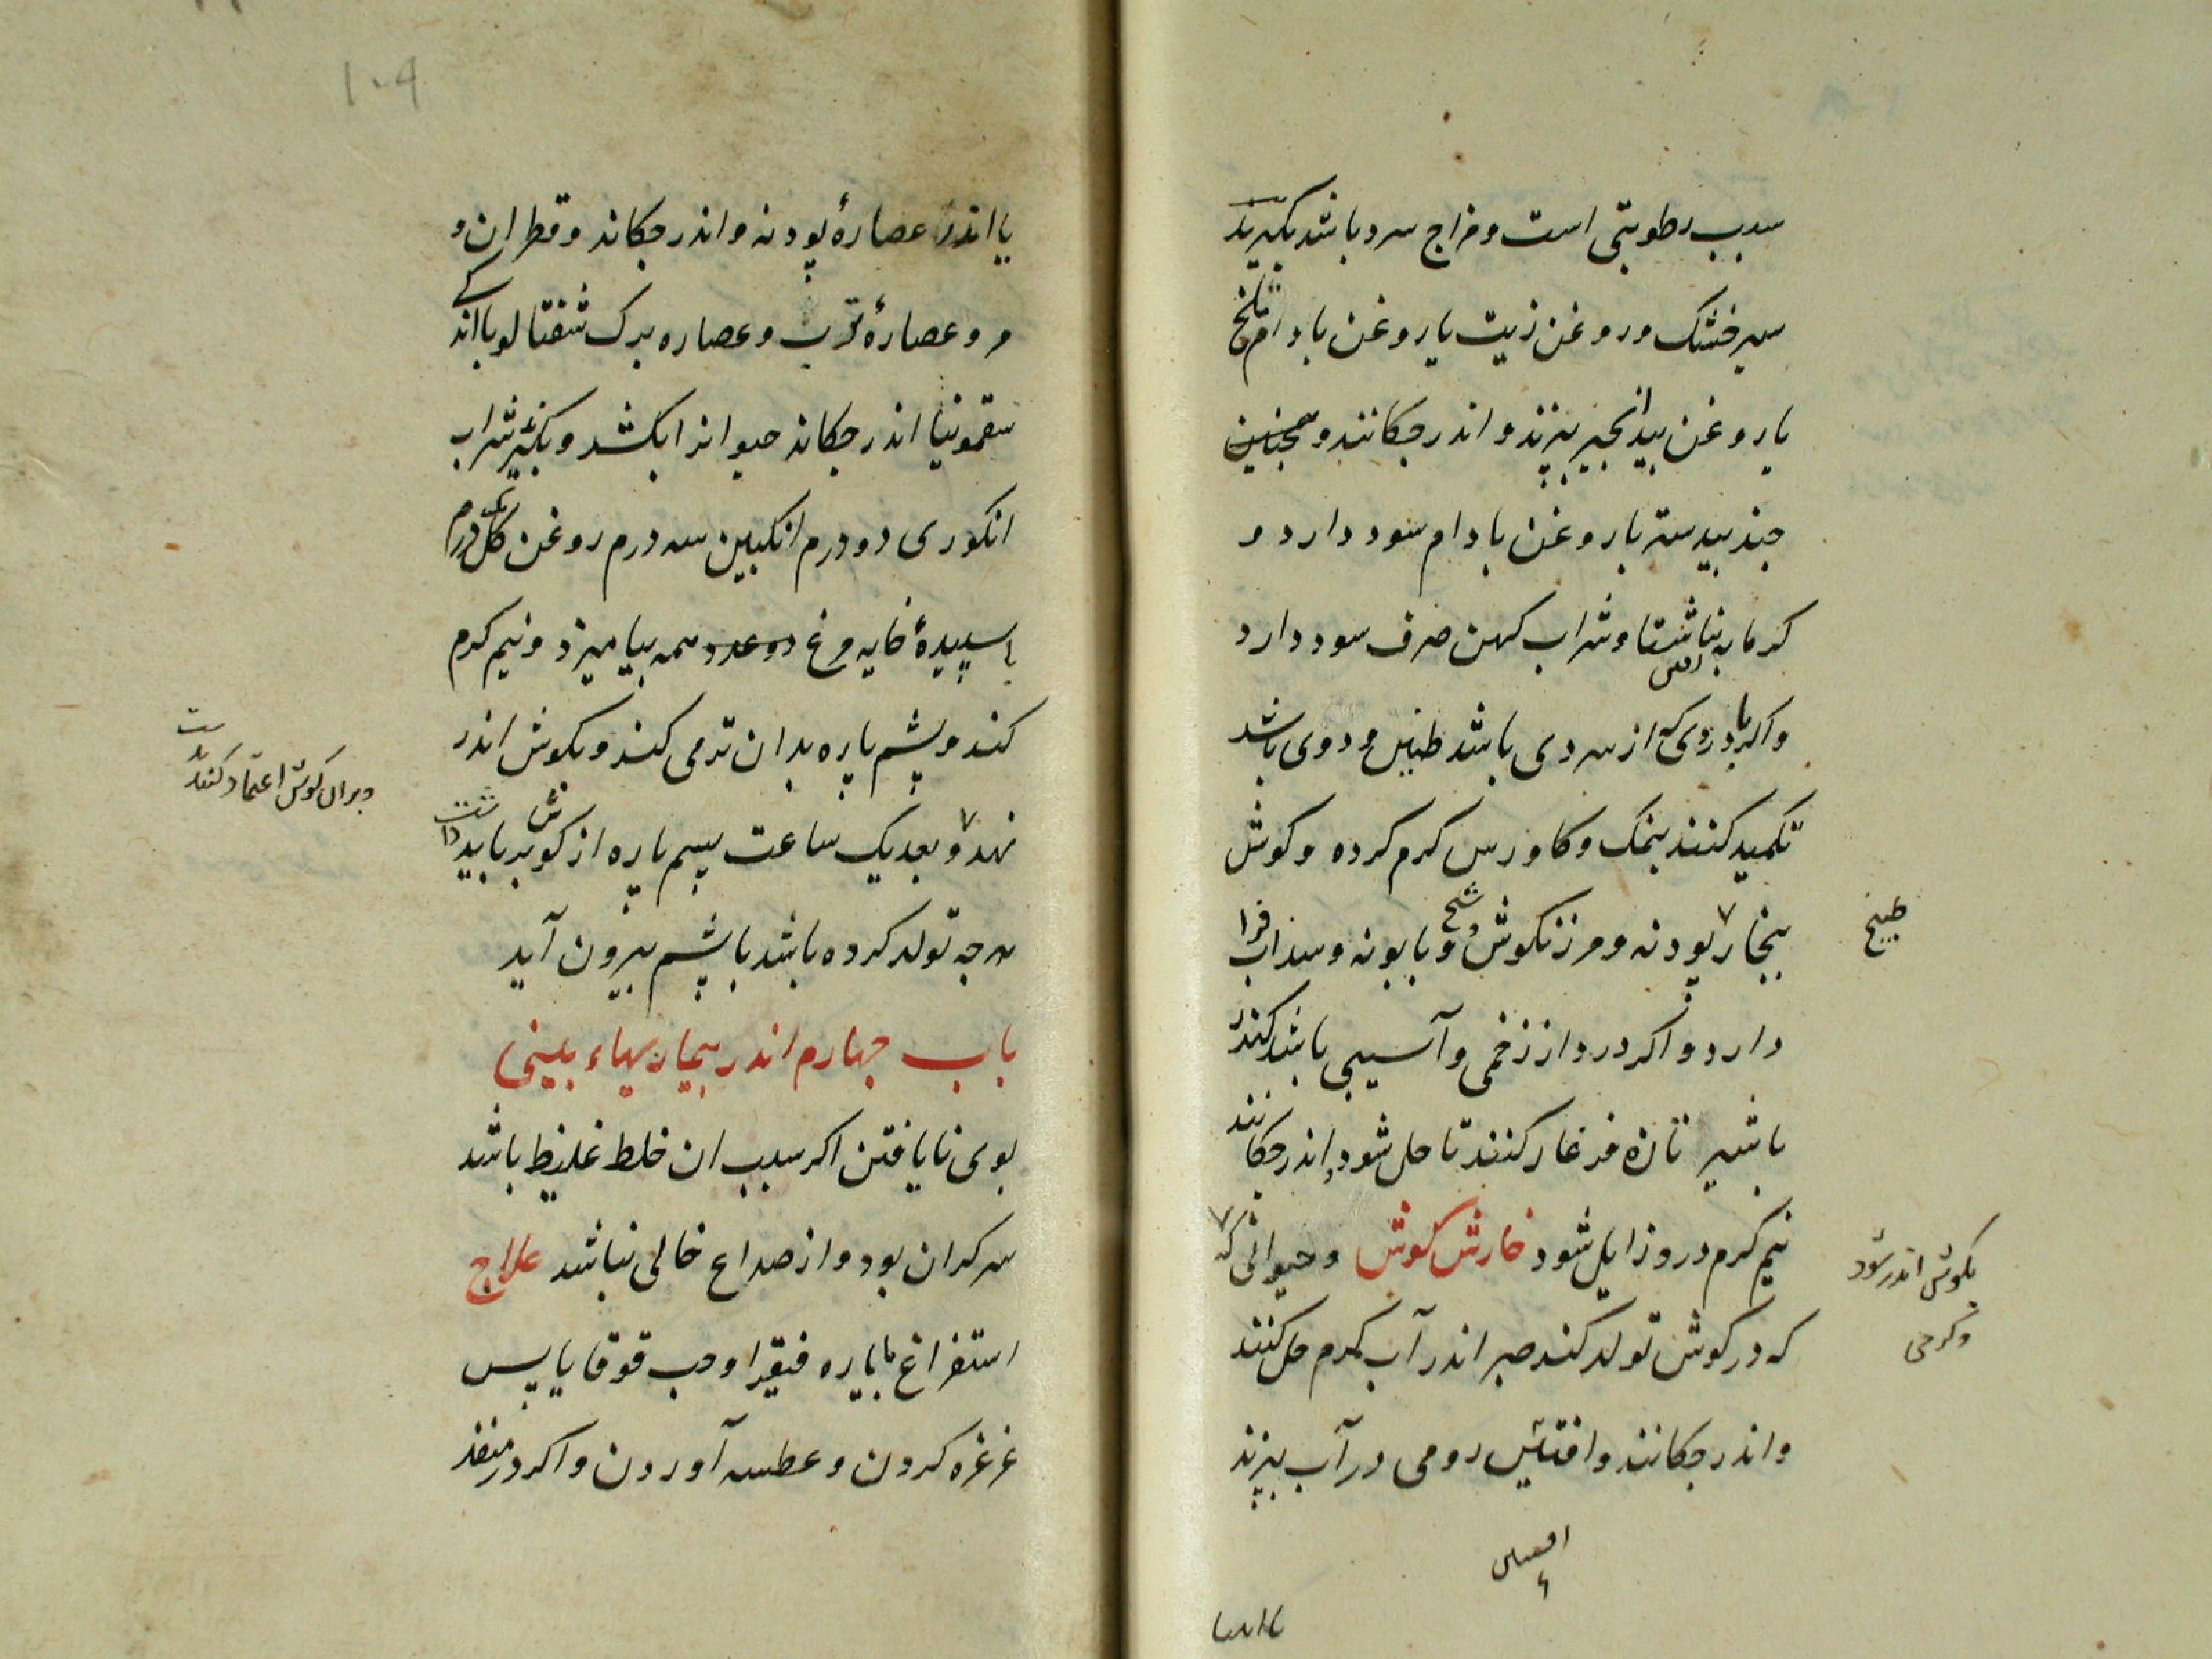 سبب رطوبتی است و مزاج سرد باشد بگیرند
سیر خشک و روغن زیت یا روغن بادام تلخ
یا روغن بیدانجیر بپزند و اندر چکانند و همچنین
جندبیدستر با روغن بادام سود دارد و
کرمابه ناشتا و شراب کهن صرف سود دارد
واکر با دردی که از سردی باشد طنین و دوی باشد
تکمید کنند بنمک و کاورس کرم کرده و کوش
ببخار پودنه و مرزنکوش و شیح و بابونه و سداب فرا
طبیخ
دارد و اکر درد از زخمی و آسیبی باشد کندر
باشیر تازه فرغار کنند تا حل شود اندر چکانند
نیم کرم درو زایل شود خارش کوش و حیوانی که
بکوش اندر شود
وکرمی
که در کوش تولد کند صبر اندر آب کرم حل کنند
و اندر چکانند و افسنتین رومی در آب بپزند
یا اندر
۱۰۹
یا اندر عصارهٔ پودنه و اندر چکاند و قطران و
مر و عصارهٔ ترب و عصاره برک شفتالو با اندکی
سقمونیا اندر چکاند حیوانرا بکشد و بکیرند شراب
انکوری دو درم انکبین سه درم روغن کل یک درم
با سپیدهٔ خایه مرغ دو عدد همه بیامیزد و نیم کرم
کند و پشم پاره بدان تر می کند و بکوش اندر
نهد و بعد یک ساعت پشم پاره از کوش بر باید داشت
وبران کوش اعتماد کنند
هرچه تولد کرده باشد با پشم بیرون آید
باب چهارم اندر بیماریهاء بینی
بوی نایافتن اکر سبب ان خلط غلیظ باشد
سر کران بود و از صداع خالی نباشد علاج
استفراغ بایاره فیقرا و حب قوقایا پس
غرغره کردن و عطسه آوردن و اکر در منفذ